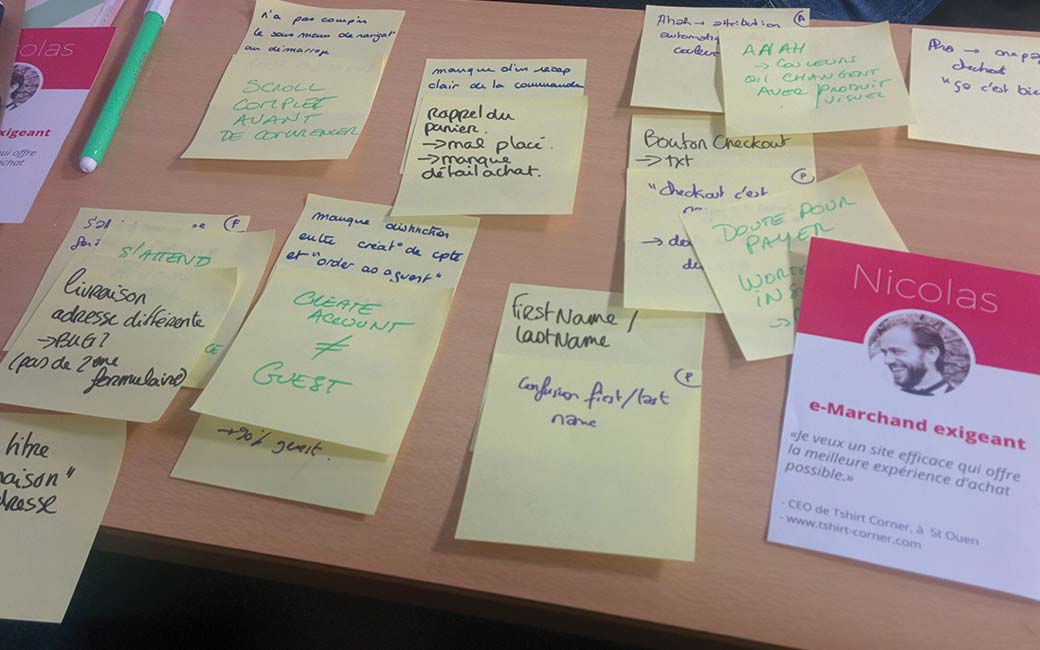 n'a pas compris
le sous menu de navigat°
au démarrage
SCROLL
COMPLET
AVANT
DE COMMENCER
manque d'un récap
clair de la commande
Rappel du
panier.
→ mal placé.
→ manque
détail achat.
Ahah → attribution
automatiq
couleur
AHAH
→ COULEURS
QUI CHANGENT
AVEC PRODUIT
one pa
checkout
"ça c'est bie
Bouton Checkout
→ txt
"checkout c'est
P
DOUTE POUR
PAYER
IN S
olas
exigeant
qui offre
achat
P
S'ATTEND
livraison
adresse différente
→ BUG?
(pas de 2ème
formulaire)
CE
titre
aison"
dresse
manque distinction
entre créat° de cpte
et "order as a guest"
CREATE
ACCOUNT
≠
GUEST
→ 90% guest.
First Name /
last Name
P
Confusion first/last
name
Nicolas
e-Marchand exigeant
«Je veux un site efficace qui offre
la meilleure expérience d'achat
possible.»
- CEO de Tshirt Corner, à St Ouen
- www.tshirt-corner.com